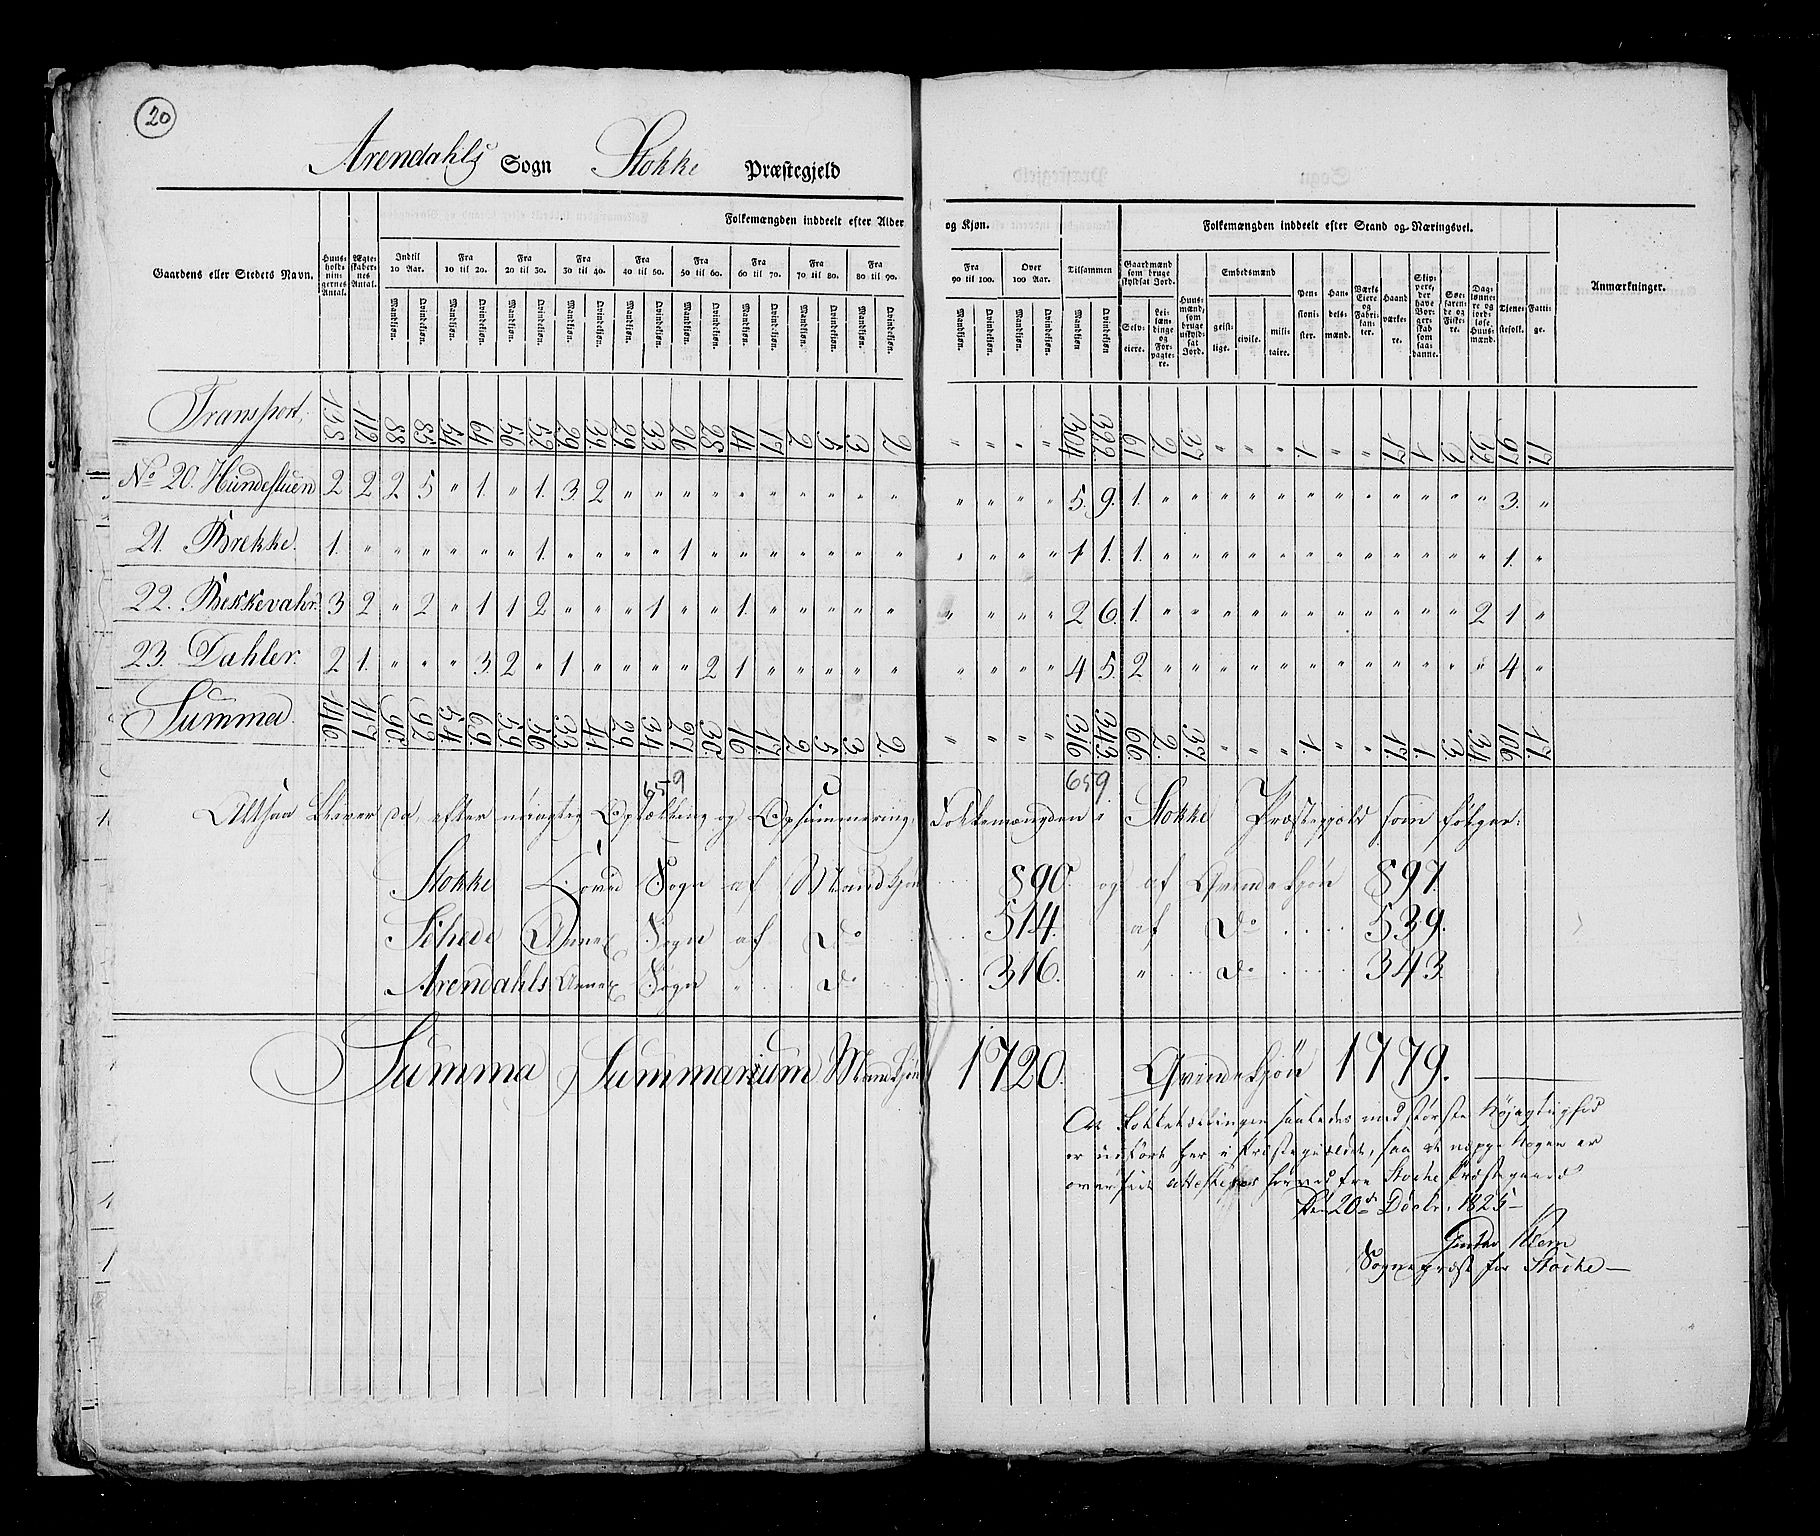 20
Arendahls Sogn Stokke Præstegjeld
Folkemængden inddeelt efter Alder og Kjøn. Folkemængden inddeelt efter Stand og Næringsvei.
Gaardens eller Stedets Navn. Huusholdningernes Antal. Ægteskabernes Antal. Indtil 10 Aar. Fra 10 til 20. Fra 20 til 30. Fra 30 til 40. Fra 40 til 50. Fra 50 til 60. Fra 60 til 70. Fra 70 til 80. Fra 80 til 90. Fra 90 til 100. Over 100 Aar. Tilsammen Gaardmænd som bruge skyldsat Jord. Huusmænd, som bruge uskyldsat Jord. Embedsmænd Pensionister. Handelsmænd. Værks Eiere og Fabrikanter. Haandværkere. Skippere, der have Borgerskab som saadanne. Søefarende og Fiskere. Dagslønnere og jordløse Huusmænd. Tjenestefolk. Fattige. Anmærkninger.
Mandkjøn. Qvindekjøn. Mandkjøn. Qvindekjøn. Mandkjøn. Qvindekjøn. Mandkjøn. Qvindekjøn. Mandkjøn. Qvindekjøn. Mandkjøn. Qvindekjøn. Mandkjøn. Qvindekjøn. Mandkjøn. Qvindekjøn. Mandkjøn. Qvindekjøn. Mandkjøn. Qvindekjøn. Mandkjøn. Qvindekjøn. Mandkjøn Qvindekjøn. Selveiere. Leilændinge og Forpagtere. geistlige. civile. militaire.
Transport. 138 112 88 85 54 64 56 52 29 39 29 33 26 28 14 17 2 5 3 2 " " " " 304 332 61 2 37 " " " 1. " " 17 1 3 32 97 17.
No 20. Hundestuen 2 2 2 5 " 1. " 1. 3 2 " " " " " " " " " " " " " " 5. 9. 1. " " " " " " " " " " " " 3. "
21. Brekke. 1. " " " " " " 1. " " " " 1 " " " " " " " " " " " 1 1. 1. " " " " " " " " " " " " 1. "
22. Bekkevahr. 3 2 " 2 " 1 1 2 " " " 1 " " 1. " " " " " " " " " 2 6. 1. " " " " " " " " " " " 2 1 "
23. Dahler. 2 1. " " " 3 2 " 1 " " " " 2 1 " " " " " " " " " 4 5. 2 " " " " " " " " " " " " 4 "
Summa. 146. 117. 90. 92. 54. 69. 59. 56 33 41. 29 34 27 30. 16 17. 2 5. 3. 2. " " " " 316 343. 66. 2. 37. " " " 1. " " 17. 1. 3. 34 106 17.
659 659
Altsaa bliver da efter nøiagtig Optælling og Opsummering, Folkemængden i Stokke Præstegjeld som følger:
Stokke Hoved Sogn af Mandkjøn 890. og af Qvindekjøn 897.
Sehede Annex Sogn af Do 514. af Do 539.
Arendahls Annex Sogn " Do 316. " Do 343.
Summa Summarium Mandkjøn 1720. Qvindekjøn 1779.
At Folketællingen saaledes med største Nøjagtighed
er udført her i Præstegieldet, saa at neppe Nogen er
overseet attesteres herved fra Stocke Præstegaard
Den 20de Decbr. 1825
Sognepræst for Stocke